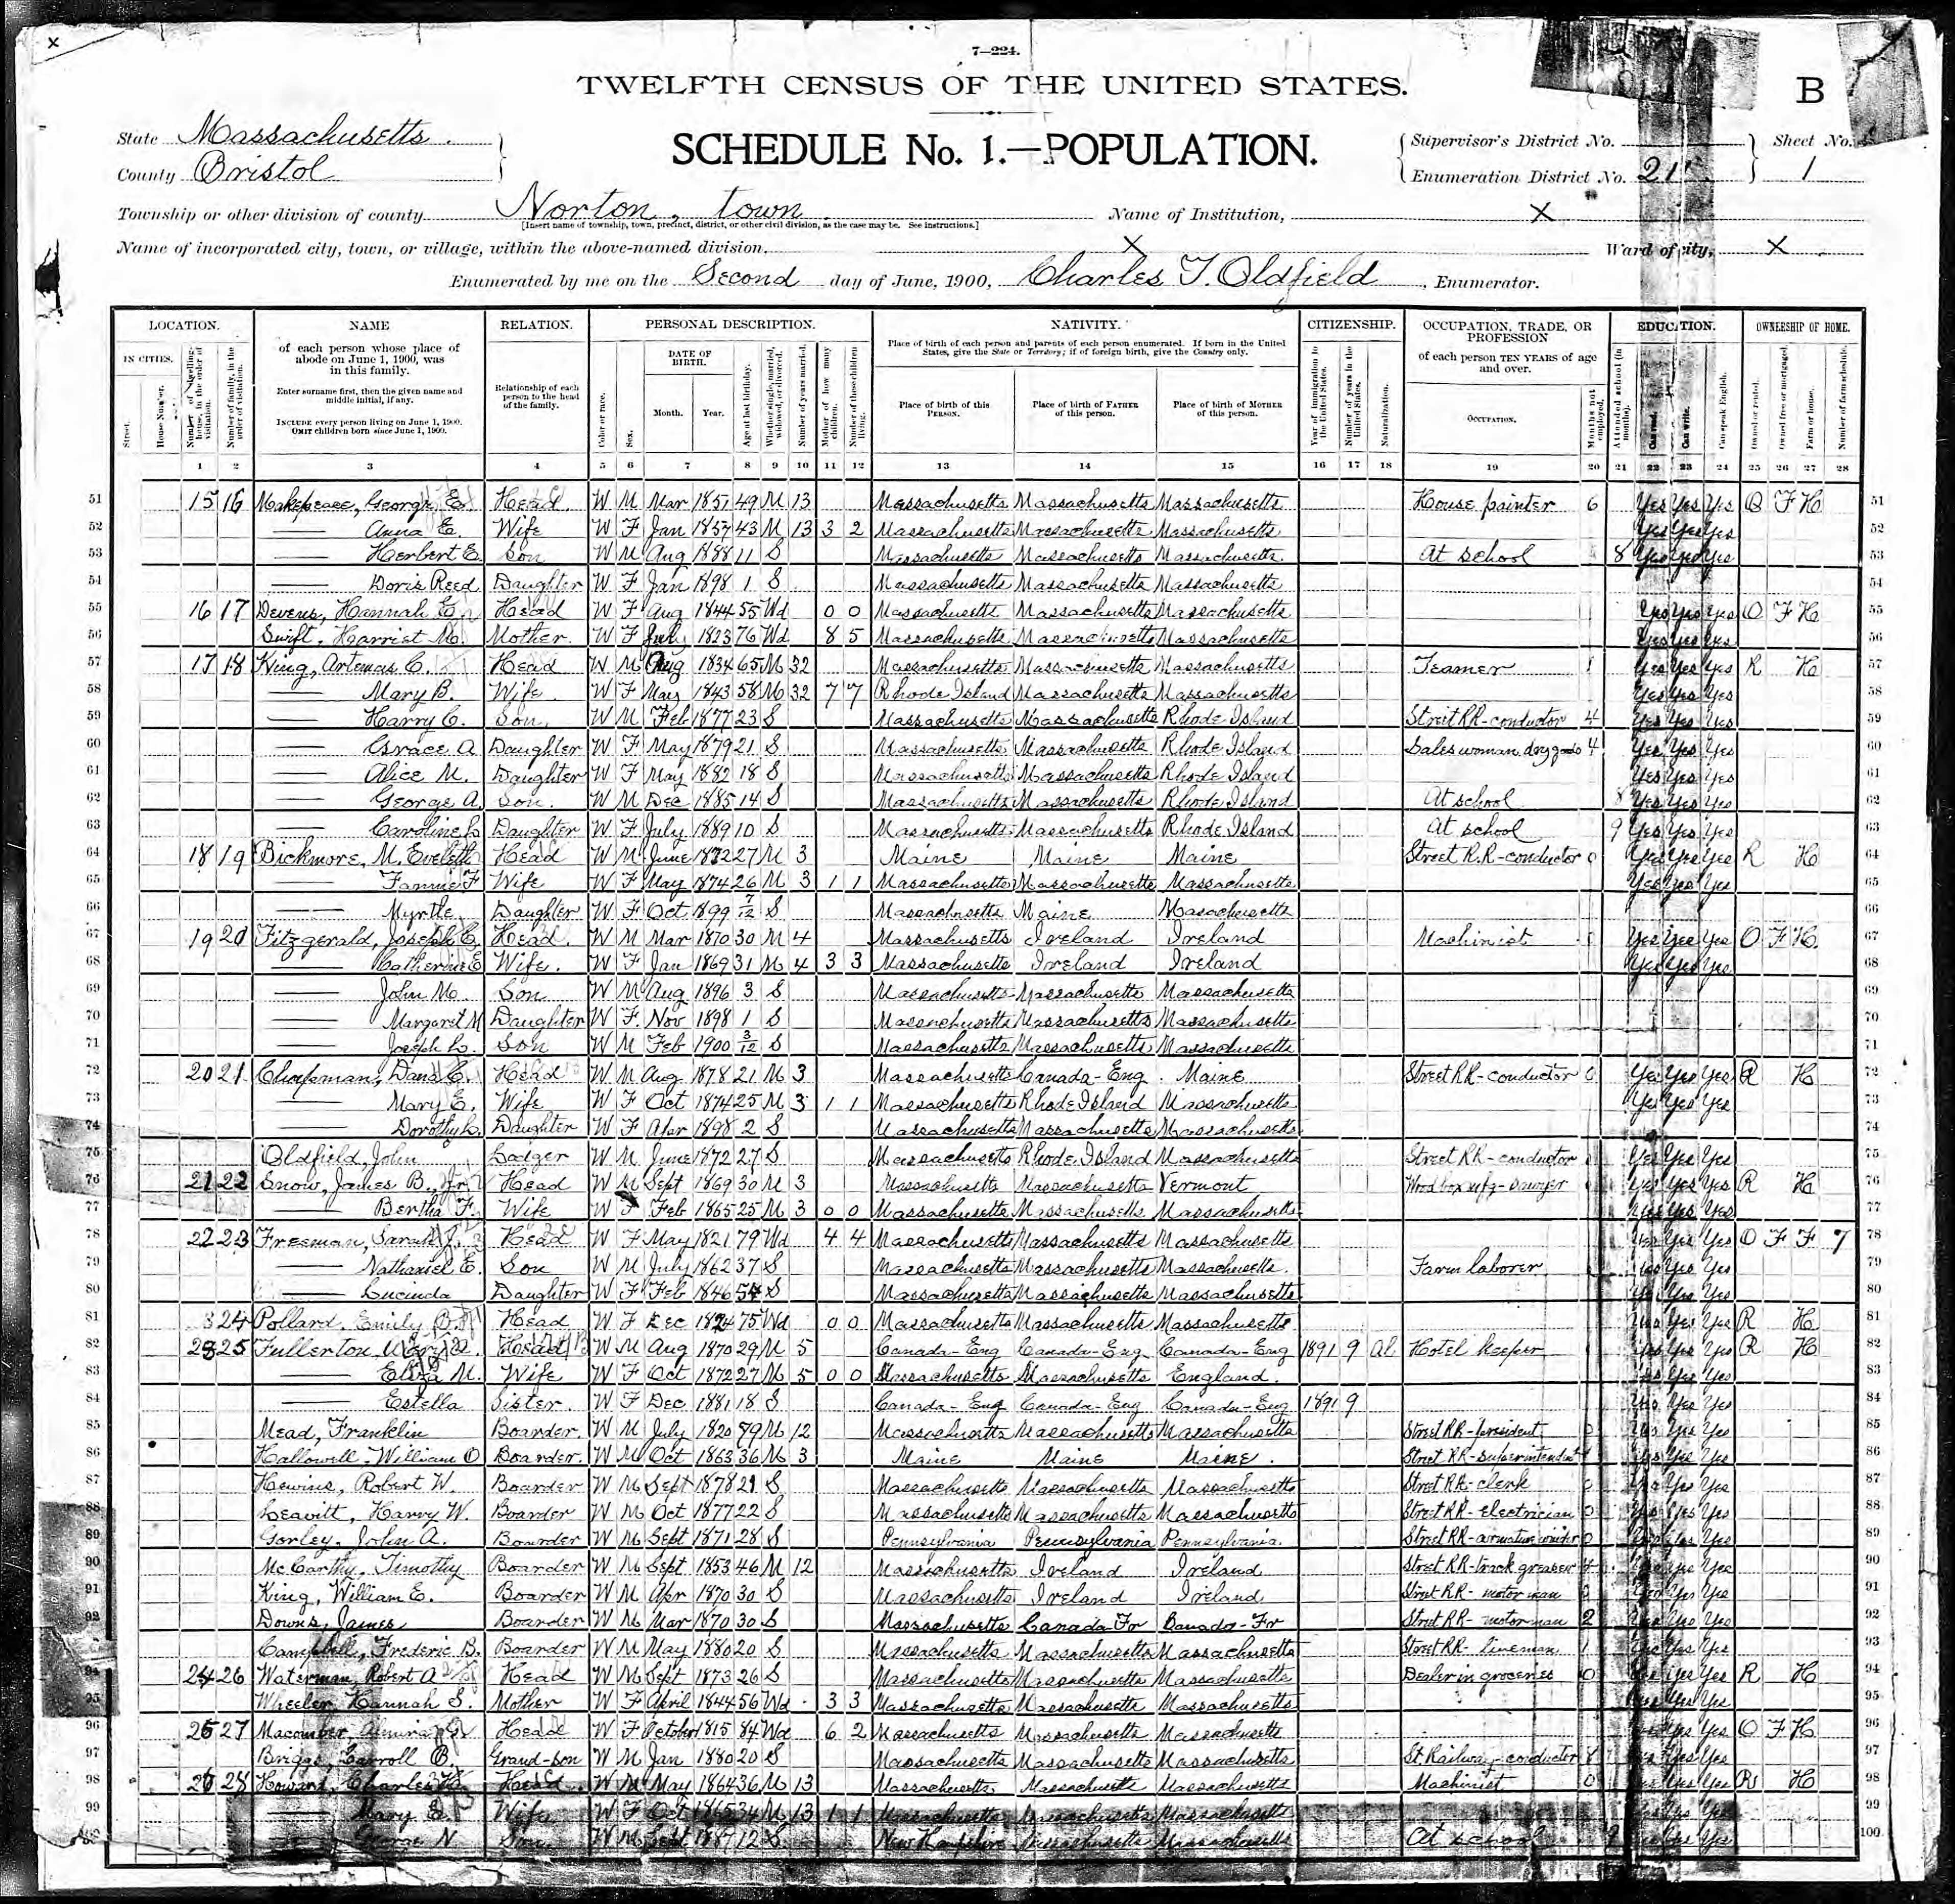 7—224.
TWELFTH CENSUS OF THE UNITED STATES.
B
State Massachusetts
County Bristol
SCHEDULE No. 1.—POPULATION.
Supervisor's District No.
Enumeration District No. 215
Sheet No.
1
Township or other division of county Norton, town
[Insert name of township, town, precinct, district, or other civil division, as the case may be. See instructions.]
Name of Institution, X
Name of incorporated city, town, or village, within the above-named division, X
Ward of city, X
Enumerated by me on the Second day of June, 1900, Charles T. Oldfield, Enumerator.
LOCATION. NAME RELATION. PERSONAL DESCRIPTION. NATIVITY. CITIZENSHIP. OCCUPATION, TRADE, OR PROFESSION EDUCATION. OWNERSHIP OF HOME.
IN CITIES. Street. House Number. Number of dwelling-house, in the order of visitation. Number of family, in the order of visitation.
of each person whose place of abode on June 1, 1900, was in this family.
Enter surname first, then the given name and middle initial, if any.
INCLUDE every person living on June 1, 1900. OMIT children born since June 1, 1900.
Relationship of each person to the head of the family.
Color or race. Sex. DATE OF BIRTH. Month. Year. Age at last birthday. Whether single, married, widowed, or divorced. Number of years married. Mother of how many children. Number of these children living.
Place of birth of each person and parents of each person enumerated. If born in the United States, give the State or Territory; if of foreign birth, give the Country only.
Place of birth of this PERSON. Place of birth of FATHER of this person. Place of birth of MOTHER of this person.
Year of immigration to the United States. Number of years in the United States. Naturalization.
of each person TEN YEARS of age and over.
OCCUPATION. Months not employed.
Attended school (in months). Can read. Can write. Can speak English.
Owned or rented. Owned free or mortgaged. Farm or house. Number of farm schedule.
1 2 3 4 5 6 7 8 9 10 11 12 13 14 15 16 17 18 19 20 21 22 23 24 25 26 27 28
51 15 16 Makepeace, George E. Head W M Mar 1851 49 M 13 Massachusetts Massachusetts Massachusetts House painter 6 Yes Yes Yes O F H 51
52 — Anna E. Wife W F Jan 1857 43 M 13 3 2 Massachusetts Massachusetts Massachusetts Yes Yes Yes 52
53 — Herbert E. Son W M Aug 1888 11 S Massachusetts Massachusetts Massachusetts At school 8 Yes Yes Yes 53
54 — Doris Reed Daughter W F Jan 1898 1 S Massachusetts Massachusetts Massachusetts 54
55 16 17 Devens, Hannah E. Head W F Aug 1844 55 Wd 0 0 Massachusetts Massachusetts Massachusetts Yes Yes Yes O F H 55
56 Swift, Harriet M. Mother W F July 1823 76 Wd 8 5 Massachusetts Massachusetts Massachusetts Yes Yes Yes 56
57 17 18 King, Artemas C. Head W M Aug 1834 65 M 32 Massachusetts Massachusetts Massachusetts Teamer Yes Yes Yes R H 57
58 — Mary B. Wife W F May 1843 58 M 32 7 7 Rhode Island Massachusetts Massachusetts Yes Yes Yes 58
59 — Harry C. Son W M Feb 1877 23 S Massachusetts Massachusetts Rhode Island Street RR-conductor 4 Yes Yes Yes 59
60 — Grace A Daughter W F May 1879 21 S Massachusetts Massachusetts Rhode Island Saleswoman dry goods 4 Yes Yes Yes 60
61 — Alice M. Daughter W F May 1882 18 S Massachusetts Massachusetts Rhode Island Yes Yes Yes 61
62 — George A. Son W M Dec 1885 14 S Massachusetts Massachusetts Rhode Island At school 8 Yes Yes Yes 62
63 — Caroline L Daughter W F July 1889 10 S Massachusetts Massachusetts Rhode Island At school 9 Yes Yes Yes 63
64 18 19 Bickmore, M. Eveleth Head W M June 1872 27 M 3 Maine Maine Maine Street R.R-conductor 0 Yes Yes Yes R H 64
65 — Fannie F Wife W F May 1874 26 M 3 1 1 Massachusetts Massachusetts Massachusetts Yes Yes Yes 65
66 — Myrtle Daughter W F Oct 1899 7/12 S Massachusetts Maine Massachusetts 66
67 19 20 Fitzgerald, Joseph E. Head W M Mar 1870 30 M 4 Massachusetts Ireland Ireland Machinist Yes Yes Yes O F H 67
68 — Catherine E Wife W F Jan 1869 31 M 4 3 3 Massachusetts Ireland Ireland Yes Yes Yes 68
69 — John M. Son W M Aug 1896 3 S Massachusetts Massachusetts Massachusetts 69
70 — Margaret M Daughter W F Nov 1898 1 S Massachusetts Massachusetts Massachusetts 70
71 — Joseph L. Son W M Feb 1900 3/12 S Massachusetts Massachusetts Massachusetts 71
72 20 21 Chapman, Dana C. Head W M Aug 1878 21 M 3 Massachusetts Canada-Eng. Maine Street RR-conductor 0 Yes Yes Yes R H 72
73 Mary E. Wife W F Oct 1874 25 M 3 1 1 Massachusetts Rhode Island Massachusetts Yes Yes Yes 73
74 — Dorothy L. Daughter W F Apr 1898 2 S Massachusetts Massachusetts Massachusetts 74
75 Oldfield, John Lodger W M June 1872 27 S Massachusetts Rhode Island Massachusetts Street RR-conductor Yes Yes Yes 75
76 21 22 Snow, James B., Jr. Head W M Sept 1869 30 M 3 Massachusetts Massachusetts Vermont Wood box mfg-sawyer Yes Yes Yes R H 76
77 — Bertha F. Wife W F Feb 1865 25 M 3 0 0 Massachusetts Massachusetts Massachusetts Yes Yes Yes 77
78 22 23 Freeman, Sarah J. Head W F May 1821 79 Wd 4 4 Massachusetts Massachusetts Massachusetts Yes Yes Yes O F F 7 78
79 — Nathaniel E. Son W M July 1862 37 S Massachusetts Massachusetts Massachusetts Farm laborer Yes Yes 79
80 — Lucinda Daughter W F Feb 1846 54 S Massachusetts Massachusetts Massachusetts Yes Yes 80
81 24 Pollard, Emily B. Head W F Dec 1824 75 Wd 0 0 Massachusetts Massachusetts Massachusetts Yes Yes R H 81
82 23 25 Fullerton, Head W M Aug 1870 29 M 5 Canada-Eng Canada-Eng Canada-Eng 1891 9 Al Hotel keeper Yes Yes R H 82
83 — Eliza M. Wife W F Oct 1872 27 M 5 0 0 Massachusetts Massachusetts England. Yes Yes 83
84 — Estella Sister W F Dec 1881 18 S Canada-Eng Canada-Eng Canada-Eng 1891 9 Yes Yes 84
85 Mead, Franklin Boarder W M July 1820 79 M 12 Massachusetts Massachusetts Massachusetts Street RR-President Yes Yes 85
86 Hallowell, William O Boarder W M Oct 1863 36 M 3 Maine Maine Maine. Street RR-superintendent Yes Yes 86
87 Hewins, Robert W. Boarder W M Sept 1878 21 S Massachusetts Massachusetts Massachusetts Street RR-clerk Yes Yes 87
88 Leavitt, Harry W. Boarder W M Oct 1877 22 S Massachusetts Massachusetts Massachusetts Street RR-electrician 0 Yes Yes 88
89 Gorley, John A. Boarder W M Sept 1871 28 S Pennsylvania Pennsylvania Pennsylvania. Street RR-armature winder 0 Yes Yes 89
90 McCarthy, Timothy Boarder W M Sept 1853 46 M 12 Massachusetts Ireland Ireland Street RR-track greaser 4 Yes Yes 90
91 King, William E. Boarder W M Apr 1870 30 S Massachusetts Ireland Ireland Street RR-motor man Yes Yes 91
92 Downs, James Boarder W M Mar 1870 30 S Massachusetts Canada Fr Canada-Fr Street RR-motorman 2 Yes Yes 92
93 Campbell, Frederic B. Boarder W M May 1880 20 S Massachusetts Massachusetts Massachusetts Street RR-lineman 1 Yes Yes 93
94 24 26 Waterman, Robert A Head W M Sept 1873 26 S Massachusetts Massachusetts Massachusetts Dealer in groceries 0 Yes Yes R H 94
95 Wheeler, Hannah S. Mother W F April 1844 56 Wd 3 3 Massachusetts Massachusetts Massachusetts Yes Yes 95
96 25 27 Macomber, Almira G. Head W F October 1815 84 Wd 6 2 Massachusetts Massachusetts Massachusetts Yes Yes O F H 96
97 Briggs, Carroll B. Grand-son W M Jan 1880 20 S Massachusetts Massachusetts Massachusetts St. Railway-conductor Yes Yes 97
98 26 28 Howard, Charles H. Head W M May 1864 36 M 13 Massachusetts Massachusetts Massachusetts Machinist 0 Yes Yes R H 98
99 — Mary E. Wife W F Oct 1865 34 M 13 1 1 Massachusetts Massachusetts Massachusetts Yes Yes 99
100 — George N Son W M Sept 1887 12 S New Hampshire Massachusetts Massachusetts At school 9 Yes Yes 100